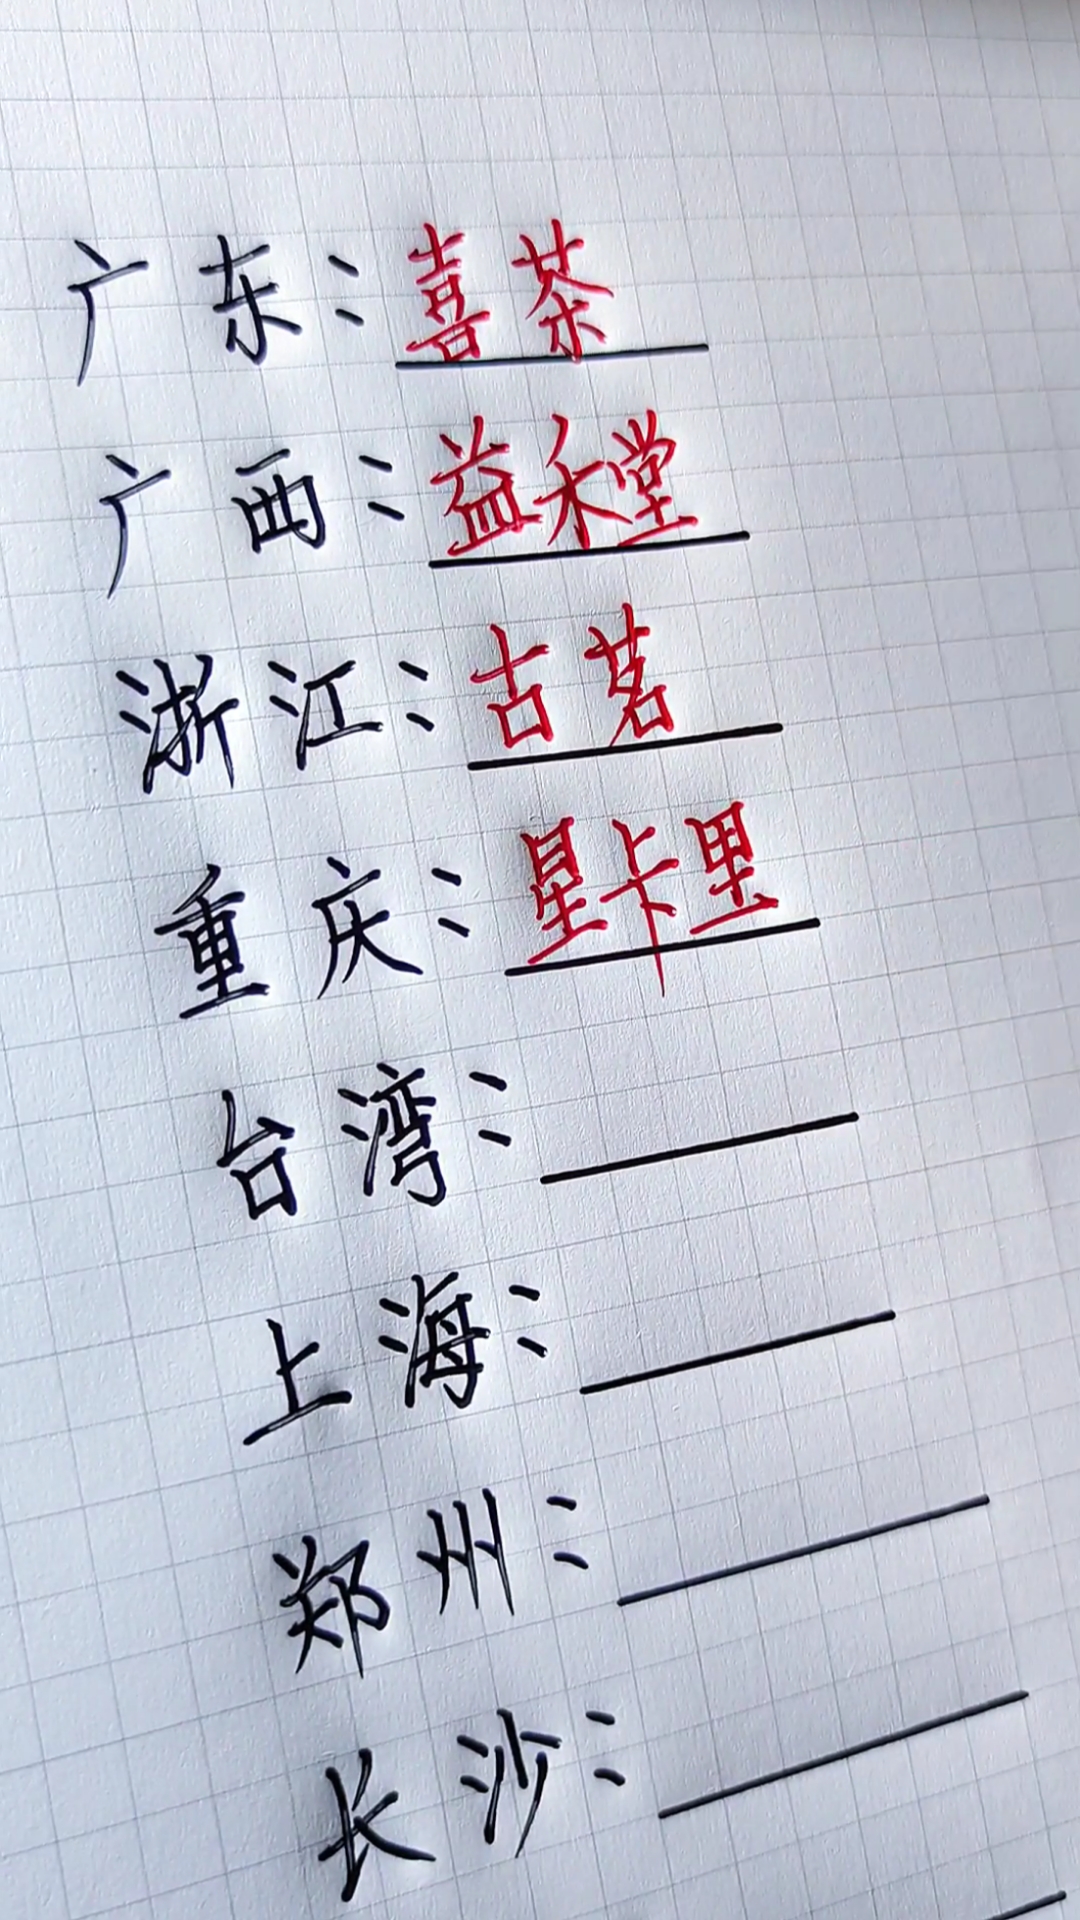 广东：喜茶
广西：益禾堂
浙江：古茗
重庆：星卡里
台湾：
上海：
郑州：
长沙：